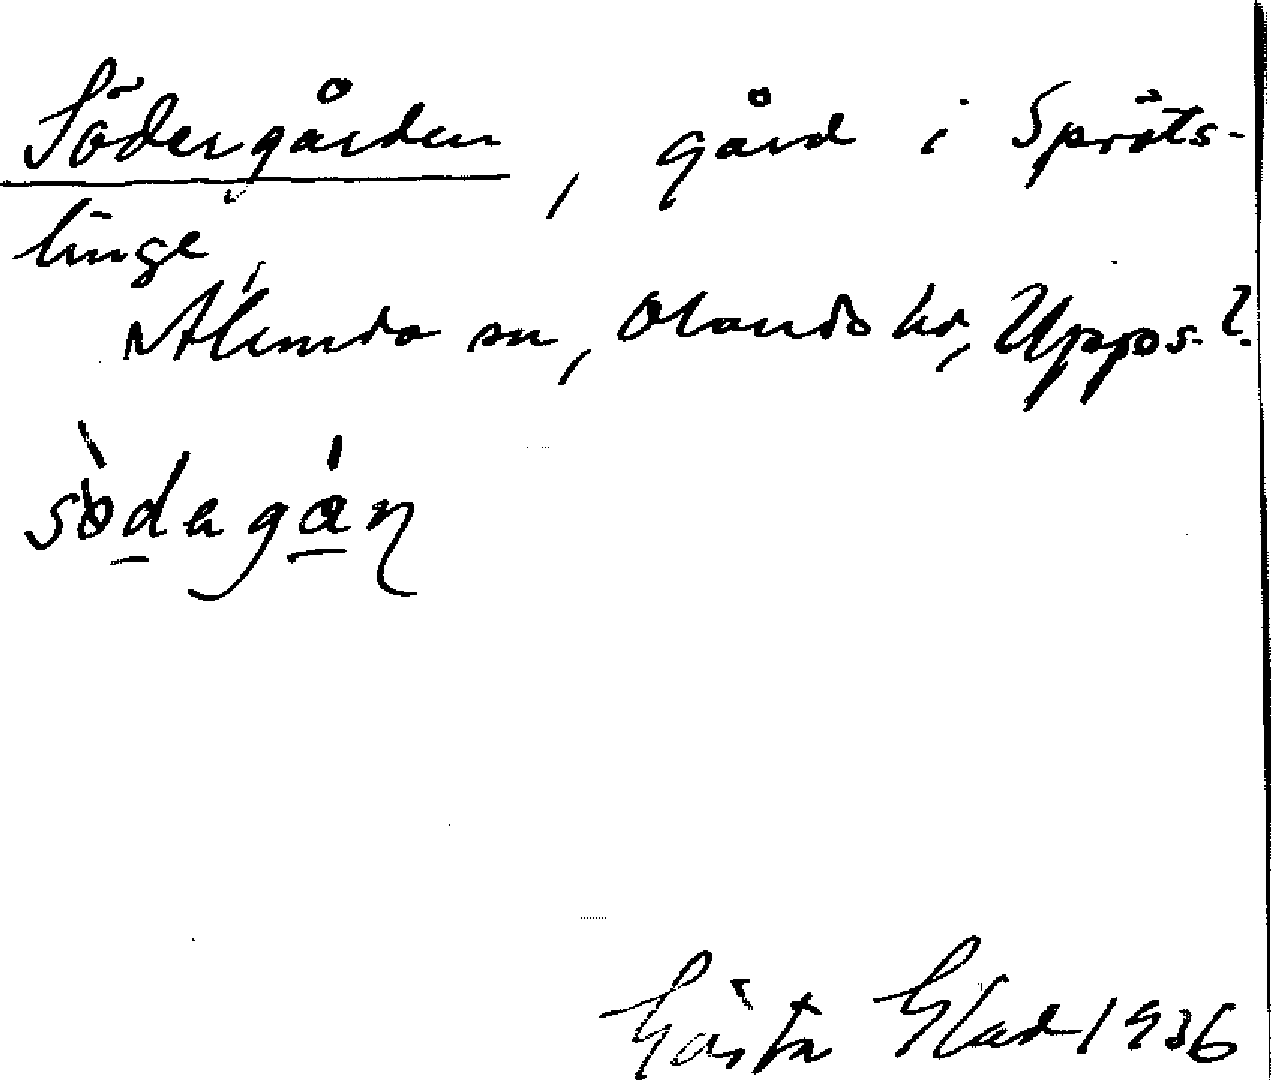 Södergården, gård i Spröts-
linge,
Alunda sn, Olands hd, Upps. l.
södagån
Gösta Glad 1936